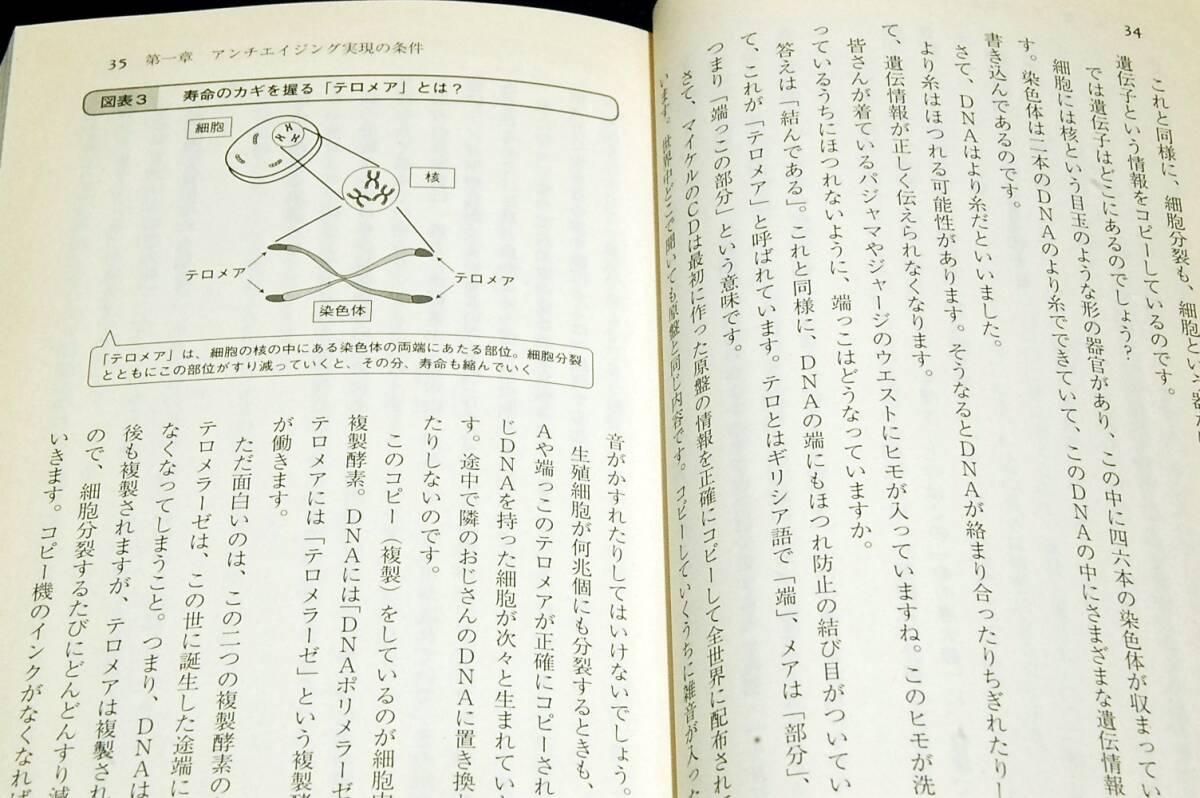 34
これと同様に、細胞分裂も、細胞という
遺伝子という情報をコピーしているのです。
では遺伝子はどこにあるのでしょう?
細胞には核という目玉のような形の器官があり、この中に四六本の染色体が収まってい
す。染色体は二本のDNAのより糸でできていて、このDNAの中にさまざまな遺伝情報
書き込んであるのです。
さて、DNAはより糸だといいました。
より糸はほつれる可能性があります。そうなるとDNAが絡まり合ったりちぎれたりし
て、遺伝情報が正しく伝えられなくなります。
皆さんが着ているパジャマやジャージのウエストにヒモが入っていますね。このヒモが洗
っているうちにほつれないように、端っこはどうなっていますか。
答えは「結んである」。これと同様に、DNAの端にもほつれ防止の結び目がついてい
て、これが「テロメア」と呼ばれています。テロとはギリシア語で「端」、メアは「部分」、
つまり「端っこの部分」という意味です。
さて、マイケルのCDは最初に作った原盤の情報を正確にコピーして全世界に配布されて
います。世界中どこで聞いても原盤と同じ内容です。コピーしていくうちに雑音が入った
35 第一章 アンチエイジング実現の条件
図表3 寿命のカギを握る「テロメア」とは?
細胞
核
テロメア
テロメア
染色体
「テロメア」は、細胞の核の中にある染色体の両端にあたる部位。細胞分裂
とともにこの部位がすり減っていくと、その分、寿命も縮んでいく
音がかすれたりしてはいけないでしょう。
生殖細胞が何兆個にも分裂するときも、
Aや端っこのテロメアが正確にコピーされ
じDNAを持った細胞が次々と生まれてい
す。途中で隣のおじさんのDNAに置き換
たりしないのです。
このコピー(複製)をしているのが細胞内
複製酵素。DNAには「DNAポリメラーゼ
テロメアには「テロメラーゼ」という複製酵
が働きます。
ただ面白いのは、この二つの複製酵素の
テロメラーゼは、この世に誕生した途端に
なくなってしまうこと。つまり、DNAは
後も複製されますが、テロメアは複製され
ので、細胞分裂するたびにどんどんすり減
いきます。コピー機のインクがなくなれば